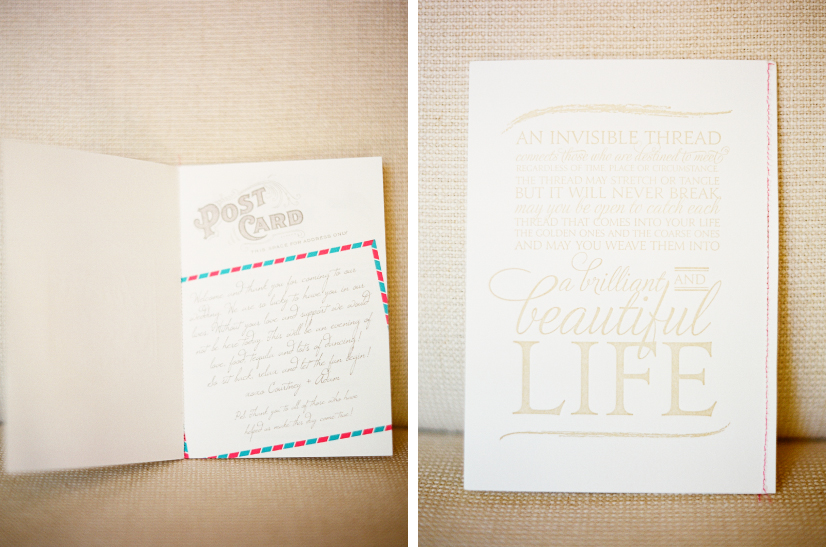 POST
CARD
THIS SPACE FOR ADDRESS ONLY
Welcome and thank you for coming to our
wedding. We are so lucky to have you in our
lives. Without your love and support we would
not be here today. This will be an evening of
love, food, tequila and lots of dancing!
So sit back, relax and let the fun begin!
xoxo Courtney + Adam
P.S. Thank you to all of those who have
helped us make this day come true!
AN INVISIBLE THREAD
connects those who are destined to meet,
REGARDLESS OF TIME, PLACE OR CIRCUMSTANCE.
THE THREAD MAY STRETCH OR TANGLE
BUT IT WILL NEVER BREAK,
may you be open to catch each
THREAD THAT COMES INTO YOUR LIFE
THE GOLDEN ONES AND THE COARSE ONES
AND MAY YOU WEAVE THEM INTO
a brilliant AND
beautiful
LIFE